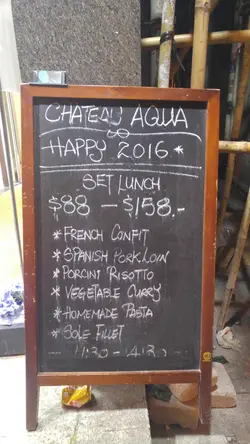 CHATEAU AQUA
HAPPY 2016 *
SET LUNCH
$88 — $158.-
* FRENCH CONFIT
* SPANISH PORK LOIN
* PORCINI RISOTTO
* VEGETABLE CURRY
* HOMEMADE PASTA
* SOLE FILLET